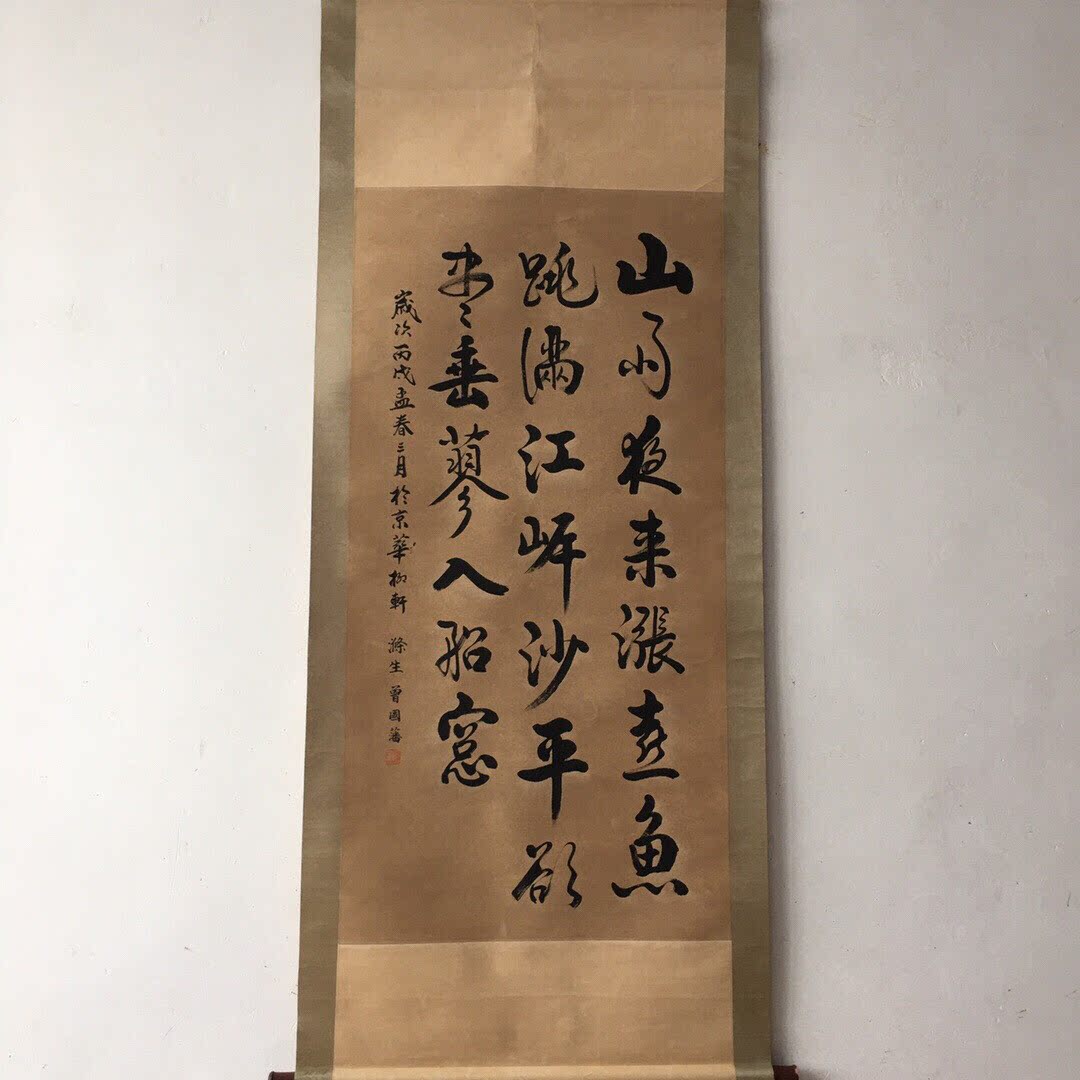 山雨夜来漲喜魚
跳滿江岸沙平欲
盡垂蓼入船窓
歲次丙戌孟春三月於京華柳軒 滌生 曾國藩